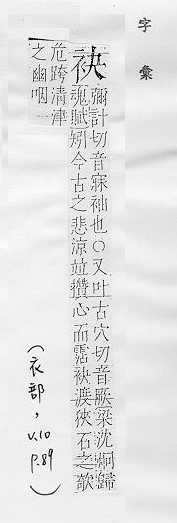 字彙
袂
彌計切音寐袖也○又叶古穴切音厥梁沈炯歸
魂賦矧今古之悲涼竝攢心而霑袂渡狹石之欹
危跨清津
之幽咽一
(衣部, v.10 p.89)